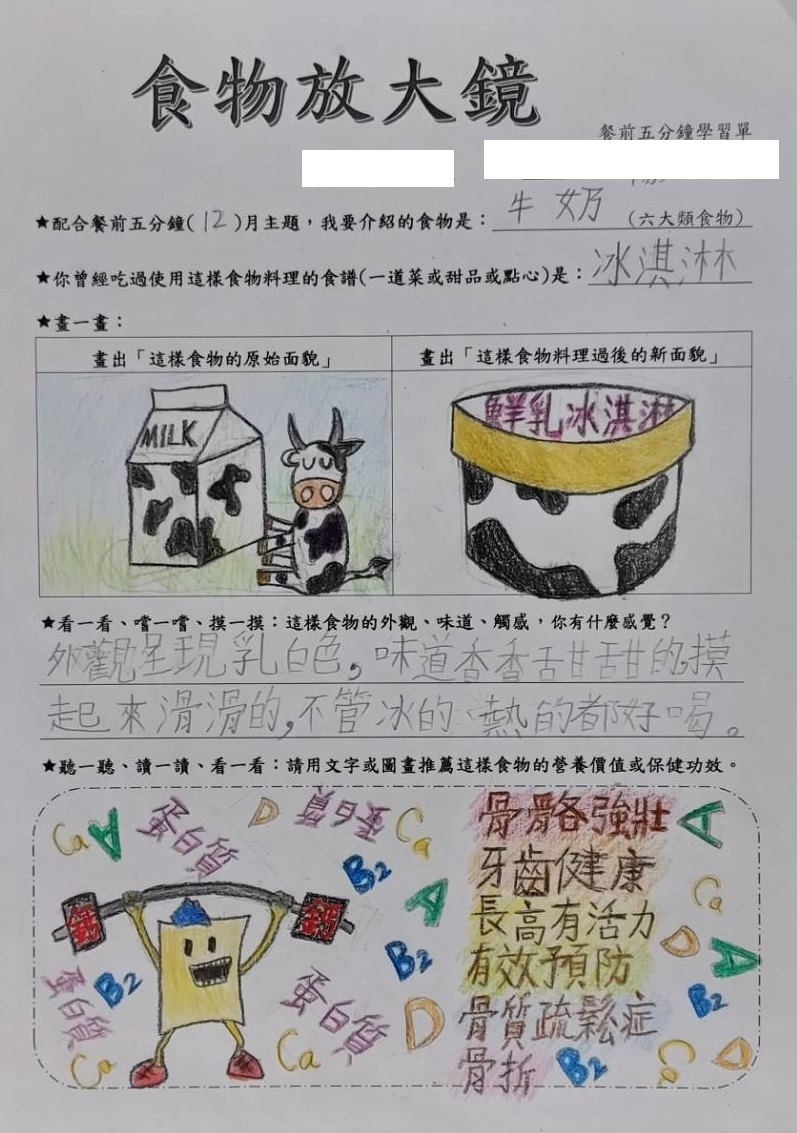 食物放大鏡
餐前五分鐘學習單
★配合餐前五分鐘(12)月主題，我要介紹的食物是：牛奶(六大類食物)
★你曾經吃過使用這樣食物料理的食譜(一道菜或甜品或點心)是：冰淇淋
★畫一畫：
畫出「這樣食物的原始面貌」 畫出「這樣食物料理過後的新面貌」
MILK
鮮乳冰淇淋
★看一看、嚐一嚐、摸一摸：這樣食物的外觀、味道、觸感，你有什麼感覺？
外觀呈現乳白色，味道香香甜甜的，摸
起來滑滑的，不管冰的、熱的都好喝。
★聽一聽、讀一讀、看一看：請用文字或圖畫推薦這樣食物的營養價值或保健功效。
Ca A 蛋白質 D 蛋白質 Ca
B2
A
鈣 鈣
B2
蛋白質 B2 蛋白質 D
Ca Ca
骨骼強壯 A
牙齒健康 Ca
長高有活力 D
有效預防 A
骨質疏鬆症 B2
骨折 B2 Ca D